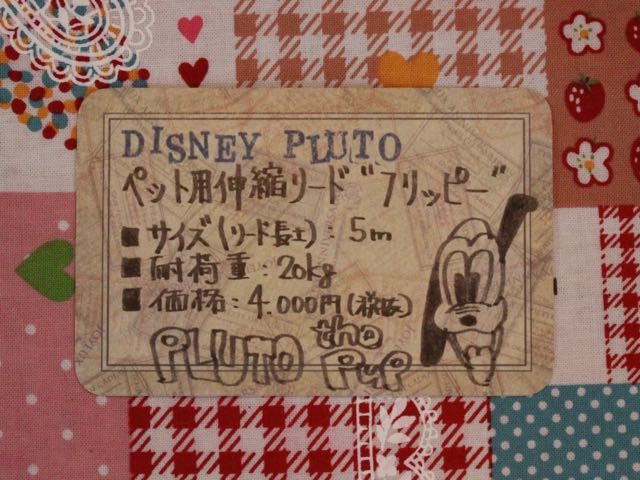 DISNEY PLUTO
ペット用伸縮リード"フリッピー"
■サイズ(リード長さ):5m
■耐荷重:20kg
■価格:4.000円(税抜)
PLUTO the PuP